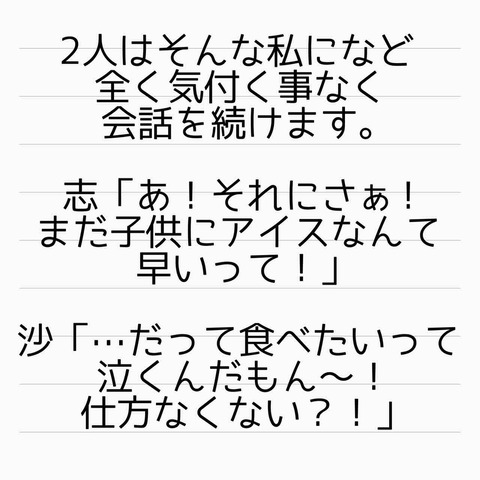 2人はそんな私になど
全く気付く事なく
会話を続けます。
志「あ！それにさぁ！
まだ子供にアイスなんて
早いって！」
沙「…だって食べたいって
泣くんだもん～！
仕方なくない？！」